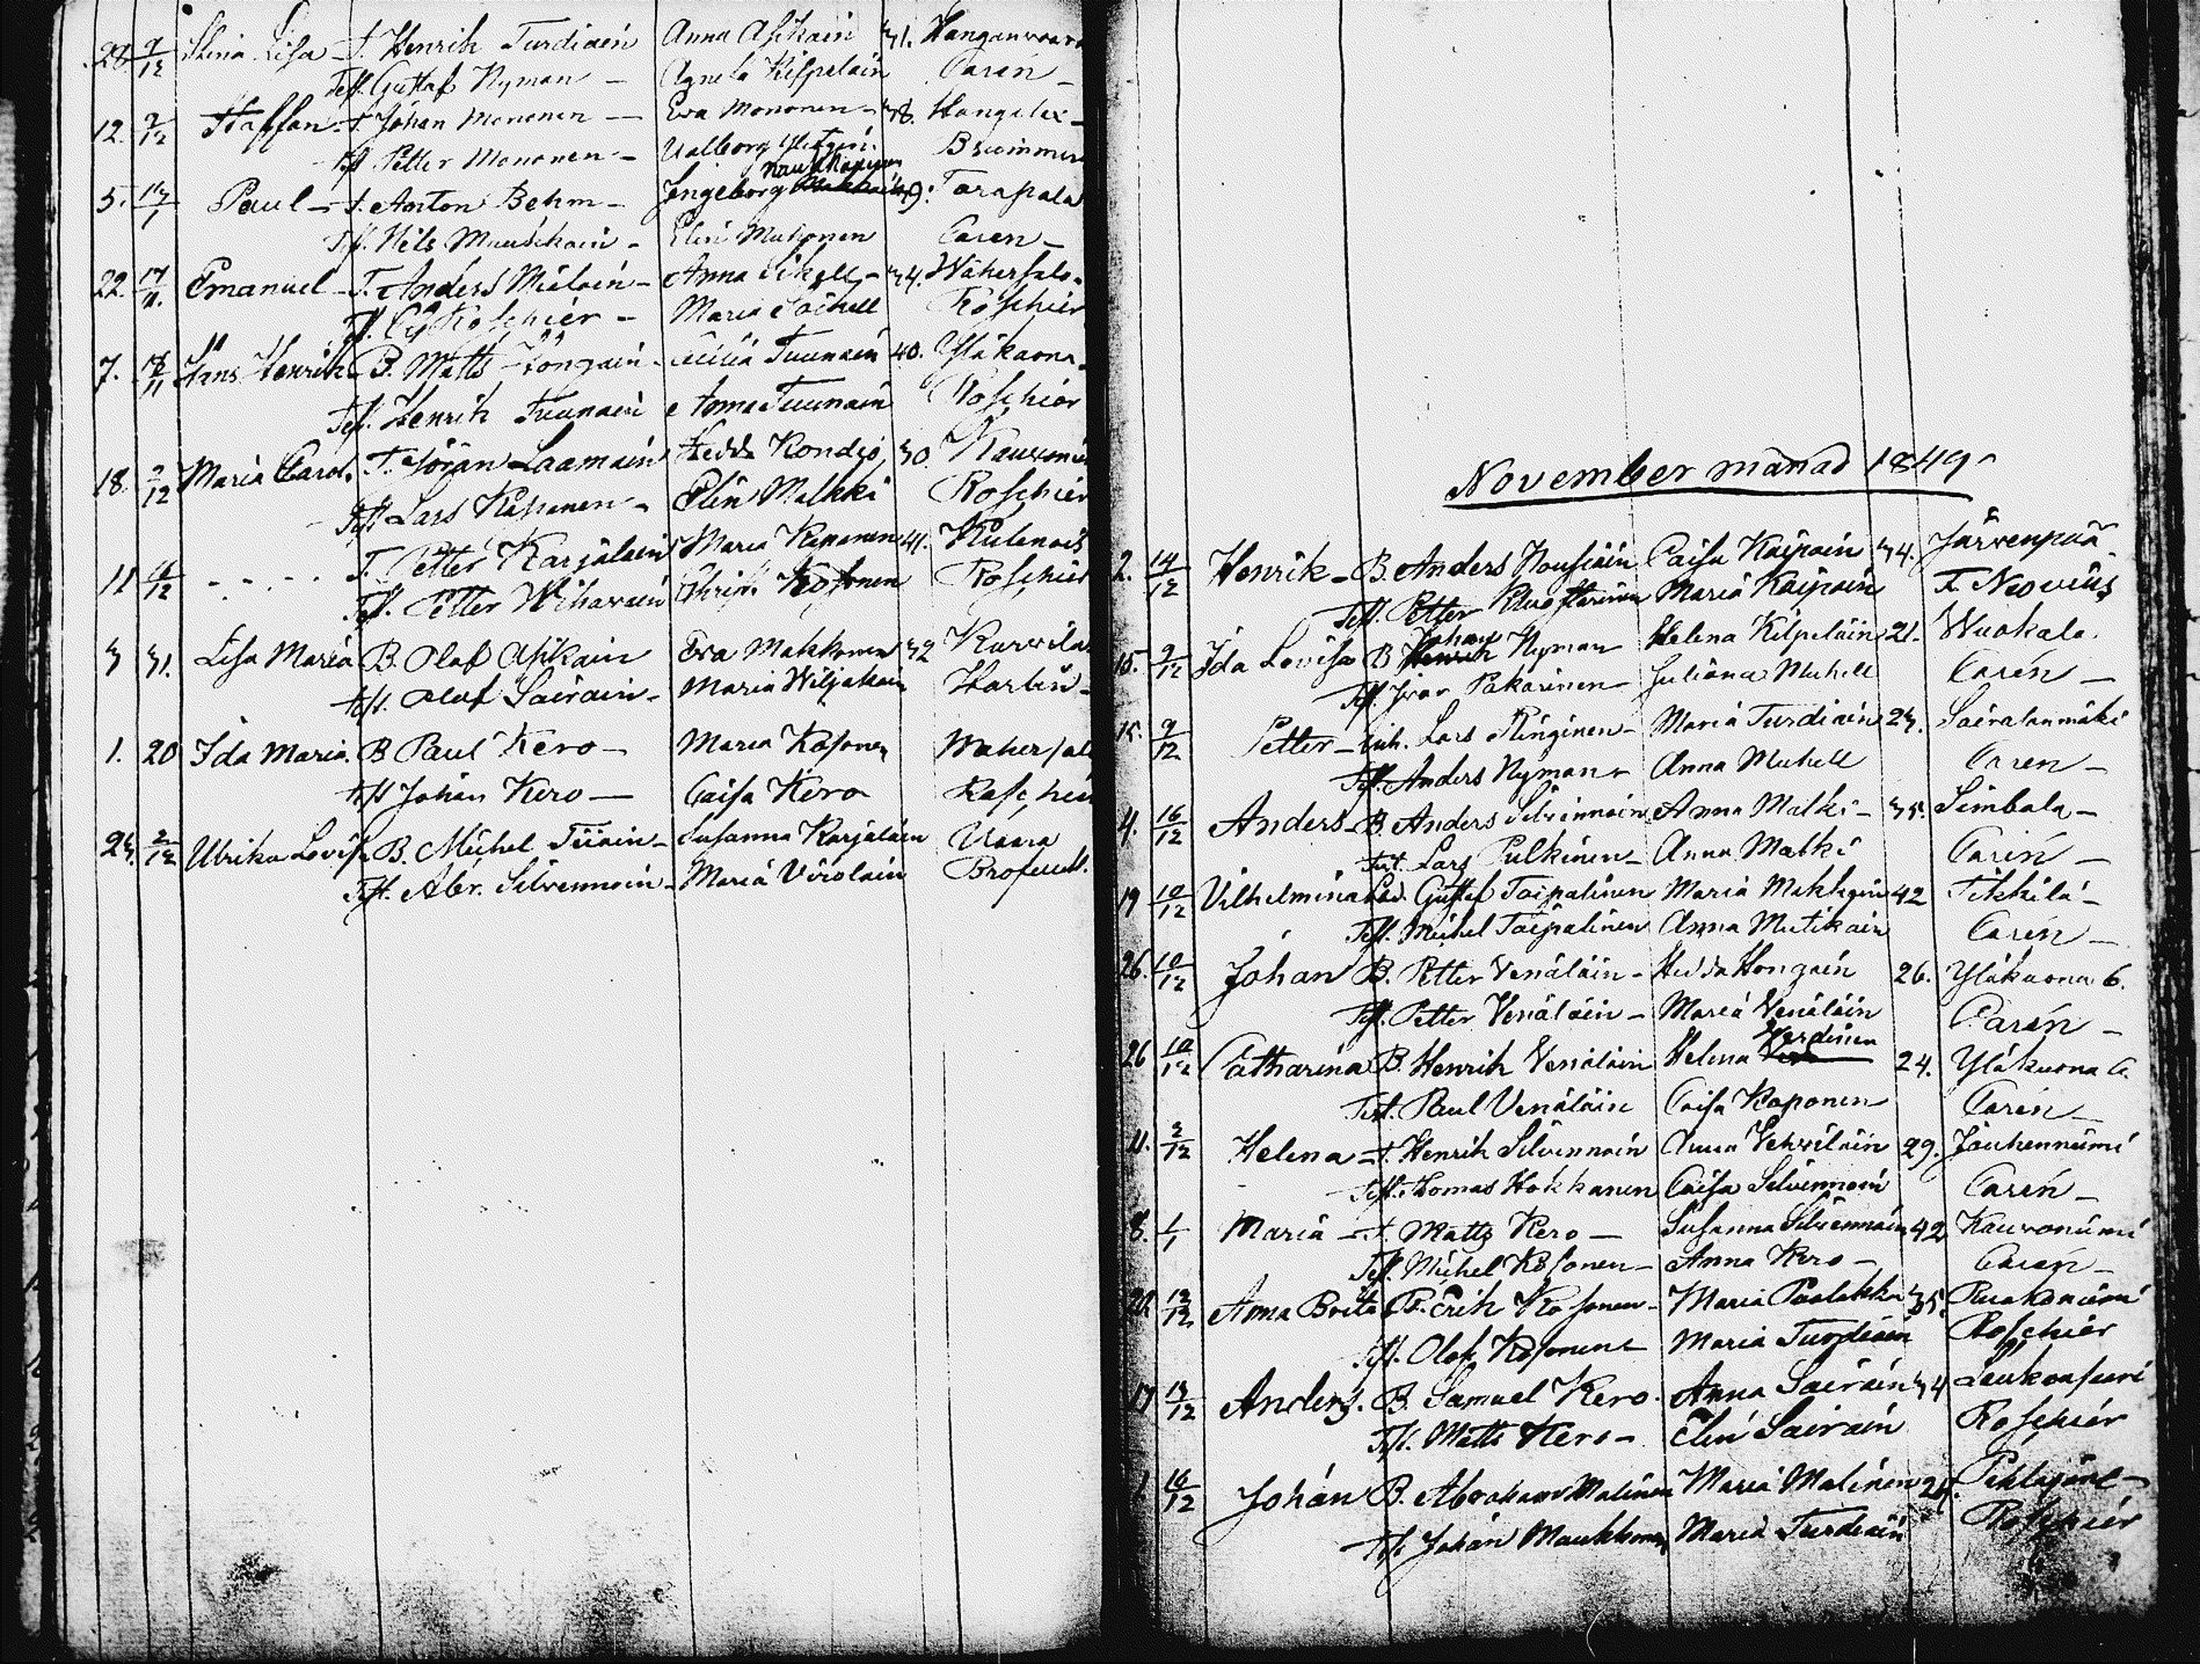 29. 9/12 Stina Lisa - T. Henrik Turdiain Anna Asikain 31. Hanganvaara
Test. Gustaf Nyman - Agneta Kilpeläin Carén -
12. 9/12 Staffan - T. Johan Mononen - Eva Mononen - 38. Hangelex -
Test. Petter Mononen - Valborg Brummer
5. 1 Paul - T. Anton Behm - Ingeborg 49. Tarapala
Test. Nils Elin Muhonen Caren -
22. 17/11. Emanuel - T. Anders Miélain - Anna Sikell - 34. Wähersalo -
Test. Roschiér - Maria Roschiér
7. 18/11 Hans Henrik B. Matts Hongain - Cecilia Tuunain 40. Yläkuona -
Test. Henrik Tuunain Anna Tuunain Roschiér
18. 2/12 Maria Carol. T. Jöran Laamain Hedda Kondio 30. Kauvoniemi
Test Lars Kaponen - Elin Malkki Roschiér
11 11/12 - - - - T. Petter Karjalain Maria Kaponen 41. Kulenois
Test. Petter Wihavain Christ. Kosonen Roschiér
3 31. Lisa Maria B. Olof Asikain Eva Makkonen 32 Karvila
test. Olof Sairain - Maria Wiljakain Harlin -
1. 20 Ida Maria. B Paul Kero - Maria Kosonen Wahersalo
test Johan Kero - Caisa Kero Roschiér
23. 2/12 Ulrika Lovisa B. Michel Tiiain - Susanna Karjalain Vaara
Test. Abr. Silvennoin - Maria Virolain Brofeldt.
November månad 1849
2. 14/12 Henrik - B. Anders Housiain Caisa Kaipain 34. Järvenpää
Test. Petter Maria Kaipain F. Neovius
15. 9/12 Ida Lovisa B Johan Nyman Helena Kilpeläin 21. Wuokala.
Test. Ivar Pakarinen - Juliana Muhell Carén -
15. 9/12. Petter - inh. Lars Ringinen - Maria Turdiain 23. Sairalanmäki
Test. Anders Nyman - Anna Muhell Caren -
4. 16/12 Anders - B. Anders Silvennoin Anna Malki - 35. Simbala -
Test. Lars Pulkinen - Anna Malki Carén -
19 10/12 Vilhelmina Gustaf Taipalinen Maria Makkoin 42 Tikkilä -
Test. Michel Taipalinen Anna Mutikain Carén -
26. 10/12 Johan B. Petter Venäläin - Hedda Hongain 26. Yläkuona 6.
Test. Petter Venäläin - Maria Venäläin Carén -
26 10/12 Catharina B. Henrik Venäläin Helena Hardinen 24. Yläkuona 6.
Test. Paul Venäläin Caisa Kaponen Carén -
11. 2/12 Helena - T. Henrik Silvennoin Anna Vehviläin 29. Jouhenniemi
Test. Thomas Hokkanen Caisa Silvennoin Carén -
8. 1/1 Maria - T. Matts Kero - Susanna Silvennoin 42 Kauvoniemi
Test. Michel Kosonen - Anna Kero - Carén -
22. 12/12 Anna Brita B. Erik Kosonen - Maria Paalakka 35. Ruokoniemi
Test. Olof Kosonen - Maria Turdiain Roschiér
17 13/12 Anders. B. Samuel Kero. Anna Sairain 34 Laukansaari
Test. Matts Kero - Elin Sairain Roschiér
1 16/12 Johan B. Abraham Malinen Maria Malinen 24. Pihlajane -
Test Johan Maukkonen Maria Turdiain Roschiér